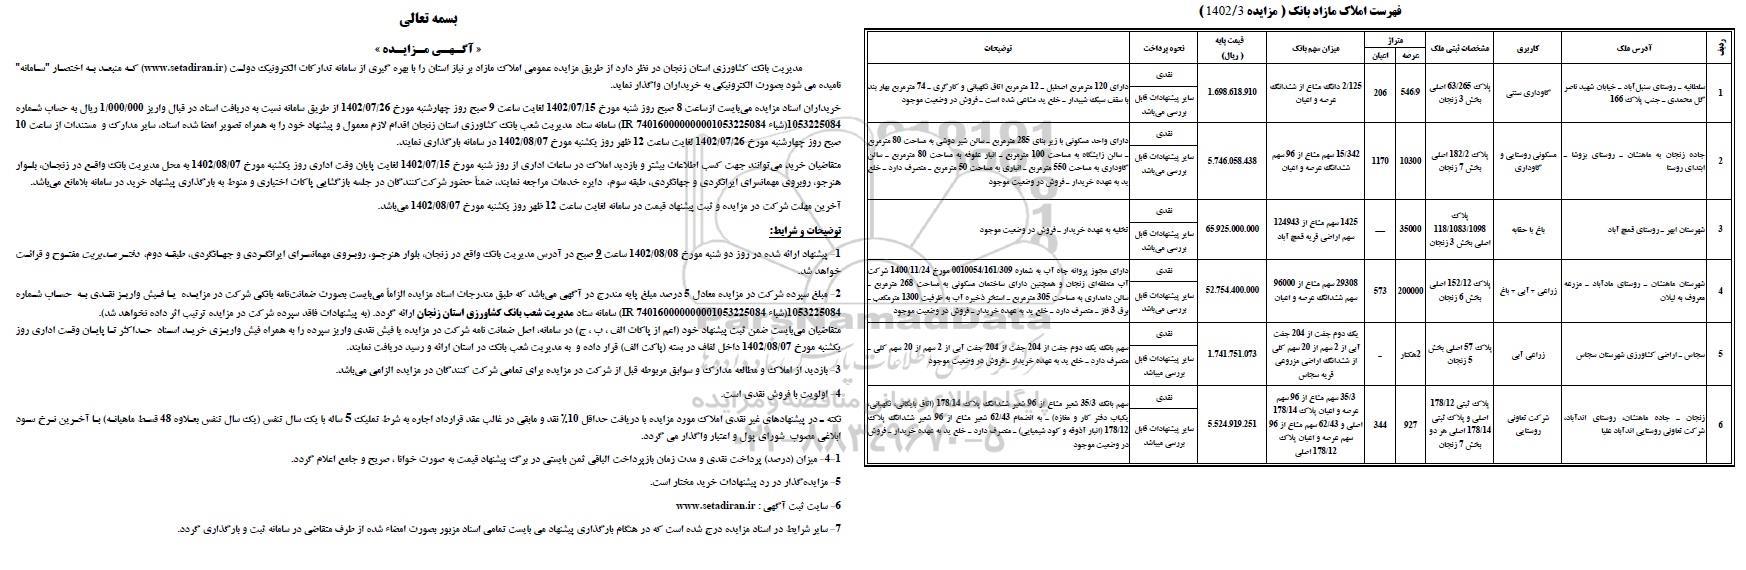 بسمه تعالی
« آگـهـی مـزایـده »
مدیریت بانک کشاورزی استان زنجان در نظر دارد از طریق مزایده عمومی املاک مازاد بر نیاز استان را با بهره گیری از سامانه تدارکات الکترونیک دولت (www.setadiran.ir) که منبعد به اختصار "سامانه"
نامیده می شود بصورت الکترونیکی به خریداران واگذار نماید.
خریداران اسناد مزایده می‌بایست ازساعت 8 صبح روز شنبه مورخ 1402/07/15 لغایت ساعت 9 صبح روز چهارشنبه مورخ 1402/07/26 از طریق سامانه نسبت به دریافت اسناد در قبال واریز 1/000/000 ریال به حساب شماره
1053225084(شباء IR 740160000000001053225084) سامانه ستاد مدیریت شعب بانک کشاورزی استان زنجان اقدام لازم معمول و پیشنهاد خود را به همراه تصویر امضا شده اسناد، سایر مدارک و مستندات از ساعت 10
صبح روز چهارشنبه مورخ 1402/07/26 لغایت ساعت 12 ظهر روز یکشنبه مورخ 1402/08/07 در سامانه بارگذاری نمایند.
متقاضیان خرید می‌توانند جهت کسب اطلاعات بیشتر و بازدید املاک در ساعات اداری از روز شنبه مورخ 1402/07/15 لغایت پایان وقت اداری روز یکشنبه مورخ 1402/08/07 به محل مدیریت بانک واقع در زنجان، بلوار
هنرجو، روبروی مهمانسرای ایرانگردی و جهانگردی، طبقه سوم، دایره خدمات مراجعه نمایند، ضمناً حضور شرکت‌کنندگان در جلسه بازگشایی پاکات اختیاری و منوط به بارگذاری پیشنهاد خرید در سامانه بلامانع می‌باشد.
آخرین مهلت شرکت در مزایده و ثبت پیشنهاد قیمت در سامانه لغایت ساعت 12 ظهر روز یکشنبه مورخ 1402/08/07 می‌باشد.
توضیحات و شرایط:
1- پیشنهاد ارائه شده در روز دو شنبه مورخ 1402/08/08 ساعت 9 صبح در آدرس مدیریت بانک واقع در زنجان، بلوار هنرجو، روبروی مهمانسرای ایرانگردی و جهانگردی، طبقه دوم، دفتر مدیریت مفتوح و قرائت
خواهد شد.
2- مبلغ سپرده شرکت در مزایده معادل 5 درصد مبلغ پایه مندرج در آگهی می‌باشد که طبق مندرجات اسناد مزایده الزاماً می‌بایست بصورت ضمانت‌نامه بانکی شرکت در مزایده یا فیش واریز نقدی به حساب شماره
1053225084(شباء IR 740160000000001053225084) سامانه ستاد مدیریت شعب بانک کشاورزی استان زنجان ارائه گردد. (به پیشنهادات فاقد سپرده شرکت در مزایده ترتیب اثر داده نخواهد شد).
متقاضیان می‌بایست ضمن ثبت پیشنهاد خود (اعم از پاکات الف ، ب ، ج) در سامانه، اصل ضمانت نامه شرکت در مزایده یا فیش نقدی واریز سپرده را به همراه فیش واریزی خرید اسناد حداکثر تا پایان وقت اداری روز
یکشنبه مورخ 1402/08/07 داخل لفاف در بسته (پاکت الف) قرار داده و به مدیریت شعب بانک در استان ارائه و رسید دریافت نمایند.
3- بازدید از املاک و مطالعه مدارک و سوابق مربوطه قبل از شرکت در مزایده برای تمامی شرکت کنندگان در مزایده الزامی می‌باشد.
4- اولویت با فروش نقدی است.
نکته ـ در پیشنهادهای غیر نقدی املاک مورد مزایده با دریافت حداقل 10٪ نقد و مابقی در غالب عقد قرارداد اجاره به شرط تملیک 5 ساله با یک سال تنفس (یک سال تنفس بعلاوه 48 قسط ماهیانه) با آخرین نرخ سود
ابلاغی مصوب شورای پول و اعتبار واگذار می گردد.
4-1- میزان (درصد) پرداخت نقدی و مدت زمان بازپرداخت الباقی ثمن بایستی در برگ پیشنهاد قیمت به صورت خوانا ، صریح و جامع اعلام گردد.
5- مزایده‌گذار در رد پیشنهادات خرید مختار است.
6- سایت ثبت آگهی : www.setadiran.ir
7- سایر شرایط در اسناد مزایده درج شده است که در هنگام بارگذاری پیشنهاد می بایست تمامی اسناد مزبور بصورت امضاء شده از طرف متقاضی در سامانه ثبت و بارگذاری گردد.
فهرست املاک مازاد بانک ( مزایده 1402/3)
ردیف آدرس ملک کاربری مشخصات ثبتی ملک متراژ عرصه اعیان میزان سهم بانک قیمت پایه ( ریال) نحوه پرداخت توضیحات
1 سلطانیه ـ روستای سنبل آباد ـ خیابان شهید ناصر گل محمدی ـ جنب پلاک 166 گاوداری سنتی پلاک 63/265 اصلی بخش 3 زنجان 546/9 206 2/125 دانگ مشاع از ششدانگ عرصه و اعیان 1.698.618.910 نقدی سایر پیشنهادات قابل بررسی می‌باشد دارای 120 مترمربع اصطبل ـ 12 مترمربع اتاق نگهبانی و کارگری ـ 74 مترمربع بهار بند با سقف سبک شیبدار ـ خلع ید مشاعی شده است ـ فروش در وضعیت موجود
2 جاده زنجان به ماهنشان ـ روستای بزوشا ـ ابتدای روستا مسکونی روستایی و گاوداری پلاک 182/2 اصلی بخش 7 زنجان 10300 1170 15/342 سهم مشاع از 96 سهم ششدانگ عرصه و اعیان 5.746.058.438 نقدی سایر پیشنهادات قابل بررسی می‌باشد دارای واحد مسکونی با زیر بنای 285 مترمربع ـ سالن شیر دوشی به مساحت 80 مترمربع ـ سالن زایشگاه به مساحت 100 مترمربع ـ انبار علوفه به مساحت 80 مترمربع ـ سالن گاوداری به مساحت 550 مترمربع ـ انباری به مساحت 50 مترمربع ـ متصرف دارد ـ خلع ید به عهده خریدار ـ فروش در وضعیت موجود
3 شهرستان ابهر ـ روستای قمچ آباد باغ با حقابه پلاک 118/1083/1098 اصلی بخش 3 زنجان 35000 ــــ 1425 سهم مشاع از 124943 سهم اراضی قریه قمچ آباد 65.925.000.000 نقدی سایر پیشنهادات قابل بررسی می‌باشد تخلیه به عهده خریدار ـ فروش در وضعیت موجود
4 شهرستان ماهنشان ـ روستای مادآباد ـ مزرعه معروف به لیلان زراعی - آبی - باغ پلاک 152/12 اصلی بخش 6 زنجان 200000 573 29308 سهم مشاع از 96000 سهم ششدانگ عرصه و اعیان 52.754.400.000 نقدی سایر پیشنهادات قابل بررسی می‌باشد دارای مجوز پروانه چاه آب به شماره 0010054/161/309 مورخ 1400/11/24 شرکت آب منطقه‌ای زنجان و همچنین دارای ساختمان مسکونی به مساحت 268 مترمربع ـ سالن دامداری به مساحت 305 مترمربع ـ استخر ذخیره آب به ظرفیت 1300 مترمکعب ـ برق 3 فاز ـ متصرف دارد ـ خلع ید به عهده خریدار ـ فروش در وضعیت موجود
5 سجاس ـ اراضی کشاورزی شهرستان سجاس زراعی آبی پلاک 57 اصلی بخش 5 زنجان 2هکتار ـ یک دوم جفت از 204 جفت آبی از 2 سهم از 20 سهم کلی از ششدانگ اراضی مزروعی قریه سجاس 1.741.751.073 نقدی سایر پیشنهادات قابل بررسی میباشد سهم بانک یک دوم جفت از 204 جفت از 204 جفت آبی از 2 سهم از 20 سهم کلی ـ متصرف دارد ـ خلع ید به عهده خریدار ـ فروش در وضعیت موجود
6 زنجان ـ جاده ماهنشان، روستای اندآباد، شرکت تعاونی روستایی اندآباد علیا شرکت تعاونی روستایی پلاک ثبتی 178/12 اصلی و پلاک ثبتی 178/14 اصلی هر دو بخش 7 زنجان 927 344 35/3 سهم مشاع از 96 سهم عرصه و اعیان پلاک 178/14 اصلی و 62/43 سهم مشاع از 96 سهم عرصه و اعیان پلاک 178/12 اصلی 5.524.919.251 نقدی سایر پیشنهادات قابل بررسی میباشد سهم بانک 35/3 شعیر مشاع از 96 شعیر ششدانگ پلاک 178/14 (اتاق بایگانی، نگهبانی، یکباب دفتر کار و مغازه) ـ به انضمام 62/43 شعیر مشاع از 96 شعیر ششدانگ پلاک 178/12 (انبار آذوقه و کود شیمیایی) ـ متصرف دارد ـ خلع ید به عهده خریدار ـ فروش در وضعیت موجود
ParsNamadData
پایگاه اطلاع رسانی مناقصه و مزایده
۰۲۱-۸۸۳۴۹۶۷۰-۵